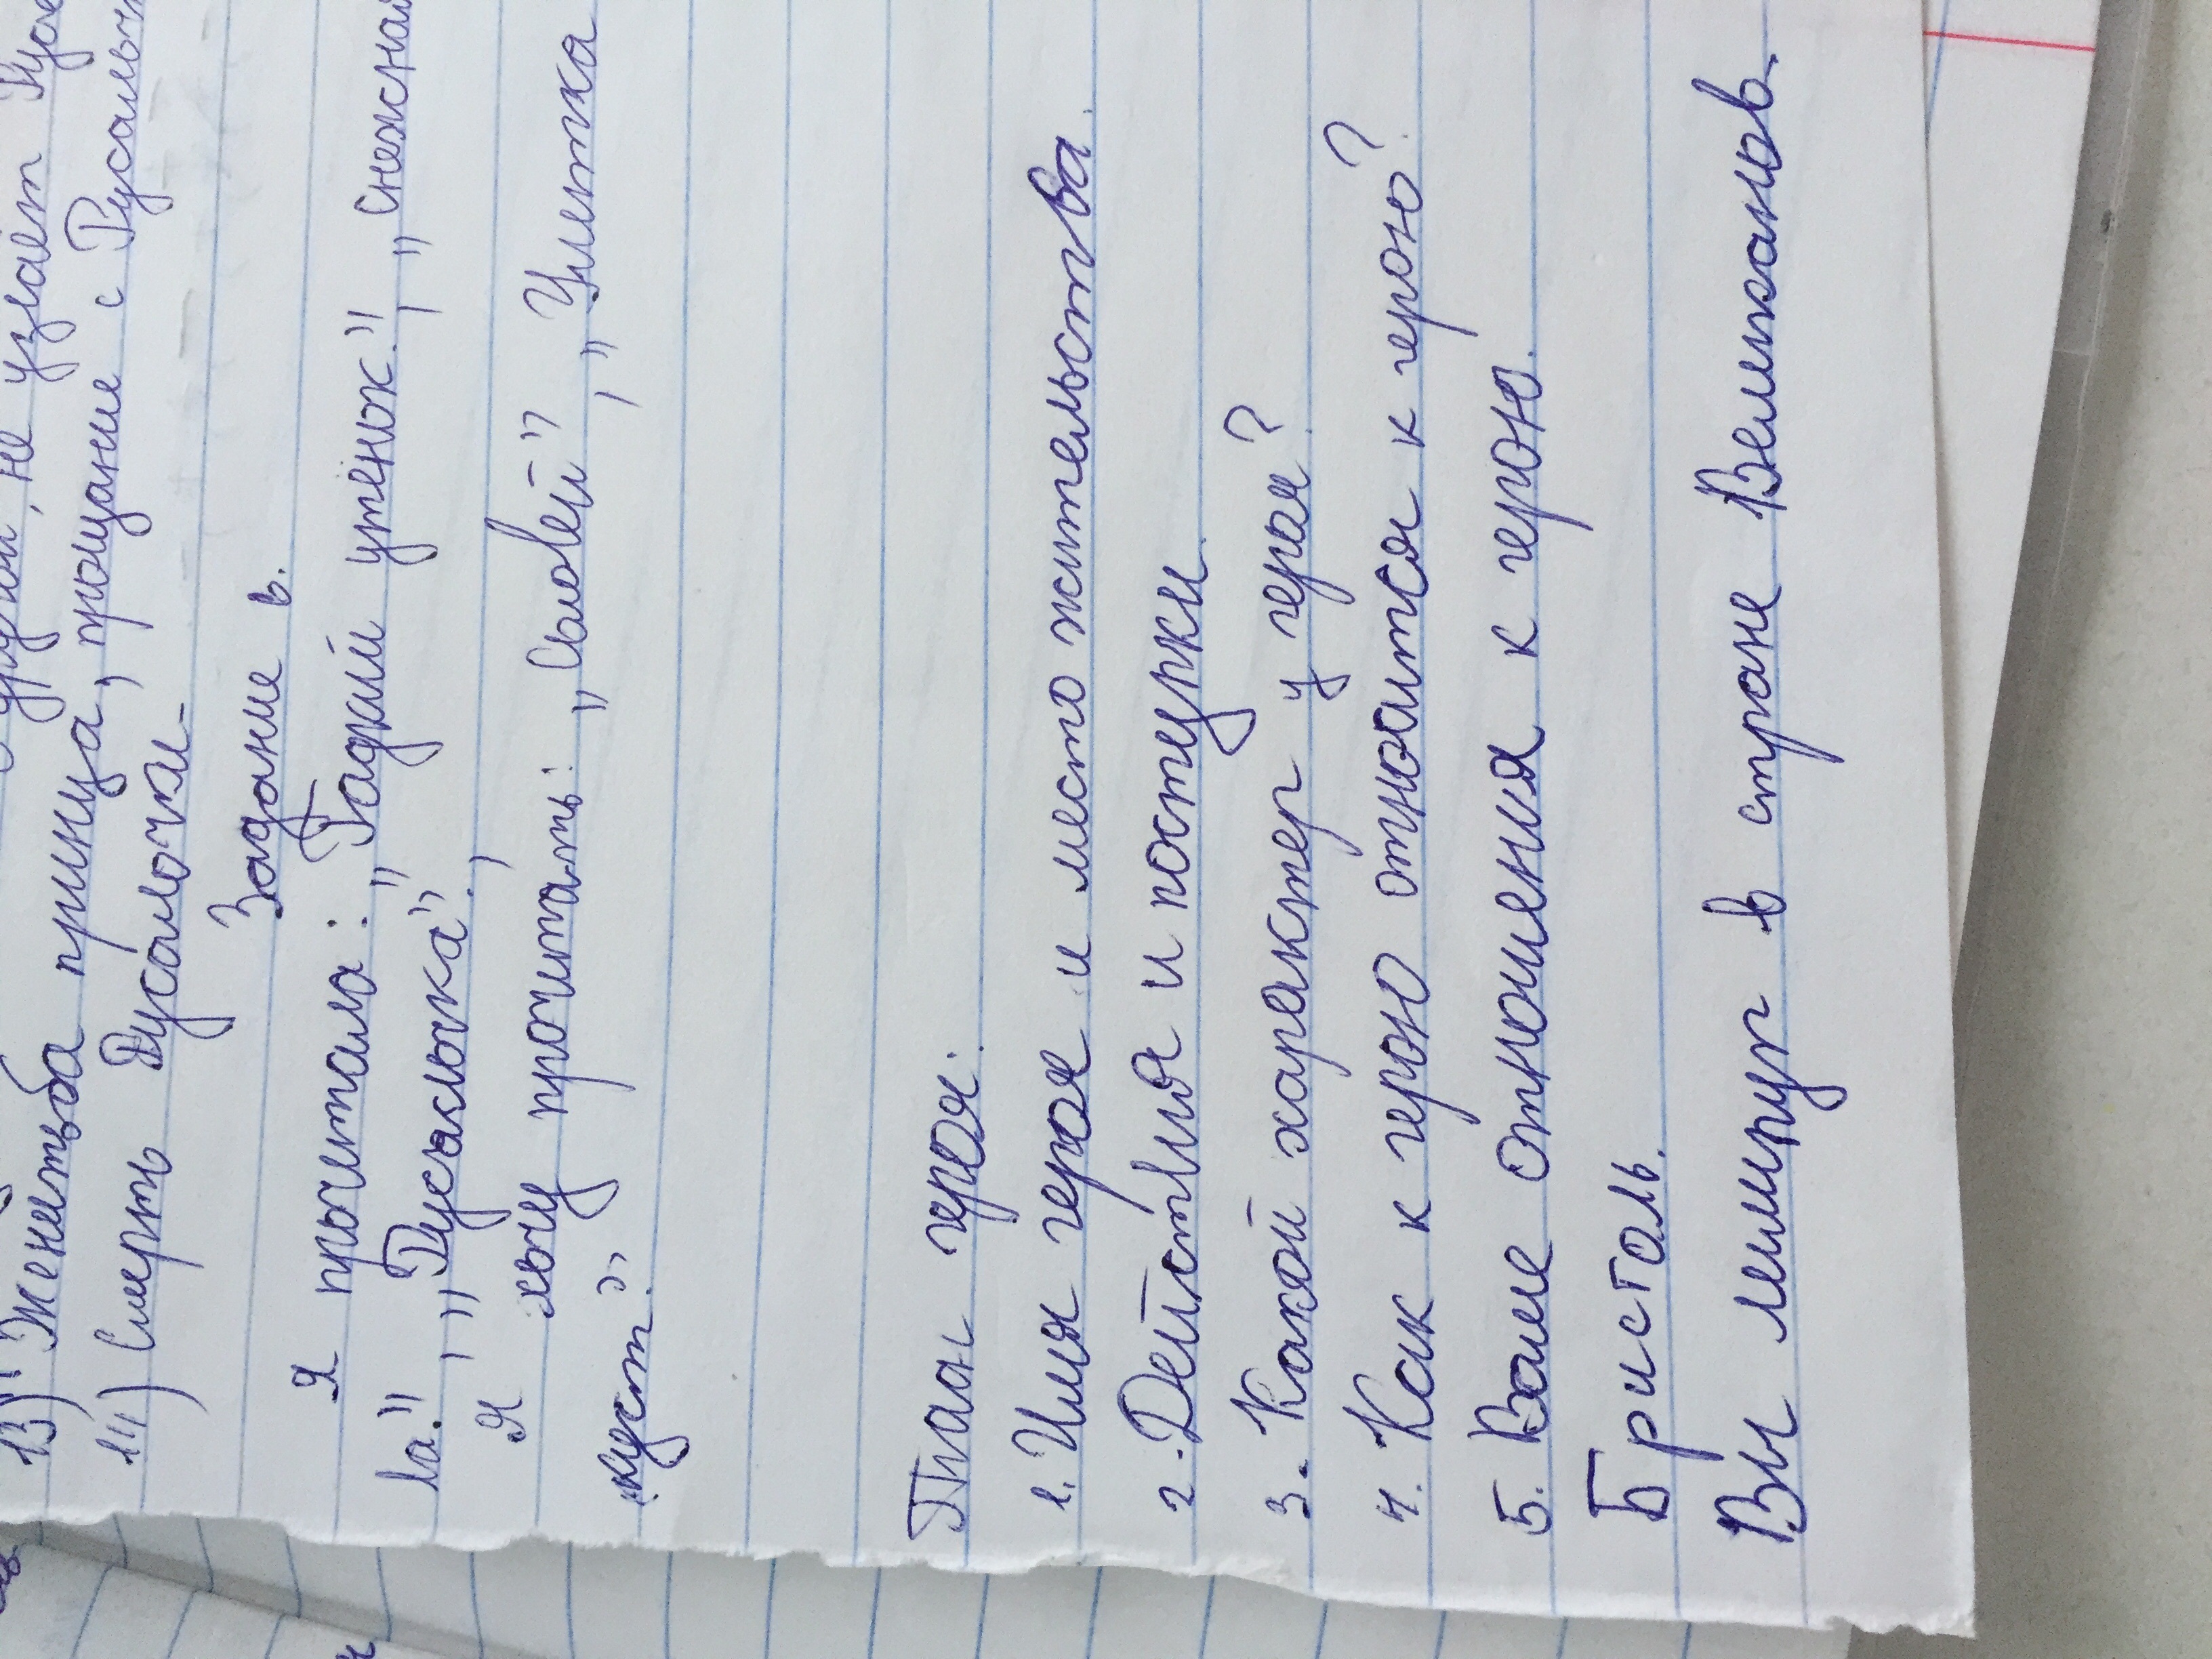 другой, не узнаёт
13) Женитьба принца, прощание с
14) Смерть Русалочки.
Задание 6.
Я прочитала: „Гадкий утёнок.”, „Снежная
ла.”, „Русалочка”.,
Я хочу прочитать: „Соловей”, „Улитка
куст.”
План героя:
1. Имя героя и место жительства.
2. Действия и поступки.
3. Какой характер у героя?
4. Как к герою относится к герою?
5. Ваше отношения к герою.
Бристоль.
Вы лилипут в стране Великанов.